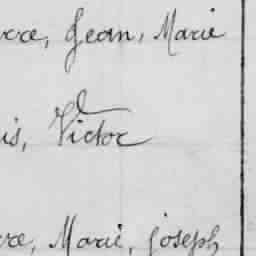 rre, Jean, Marie
is, Victor
rre, Marie, joseph